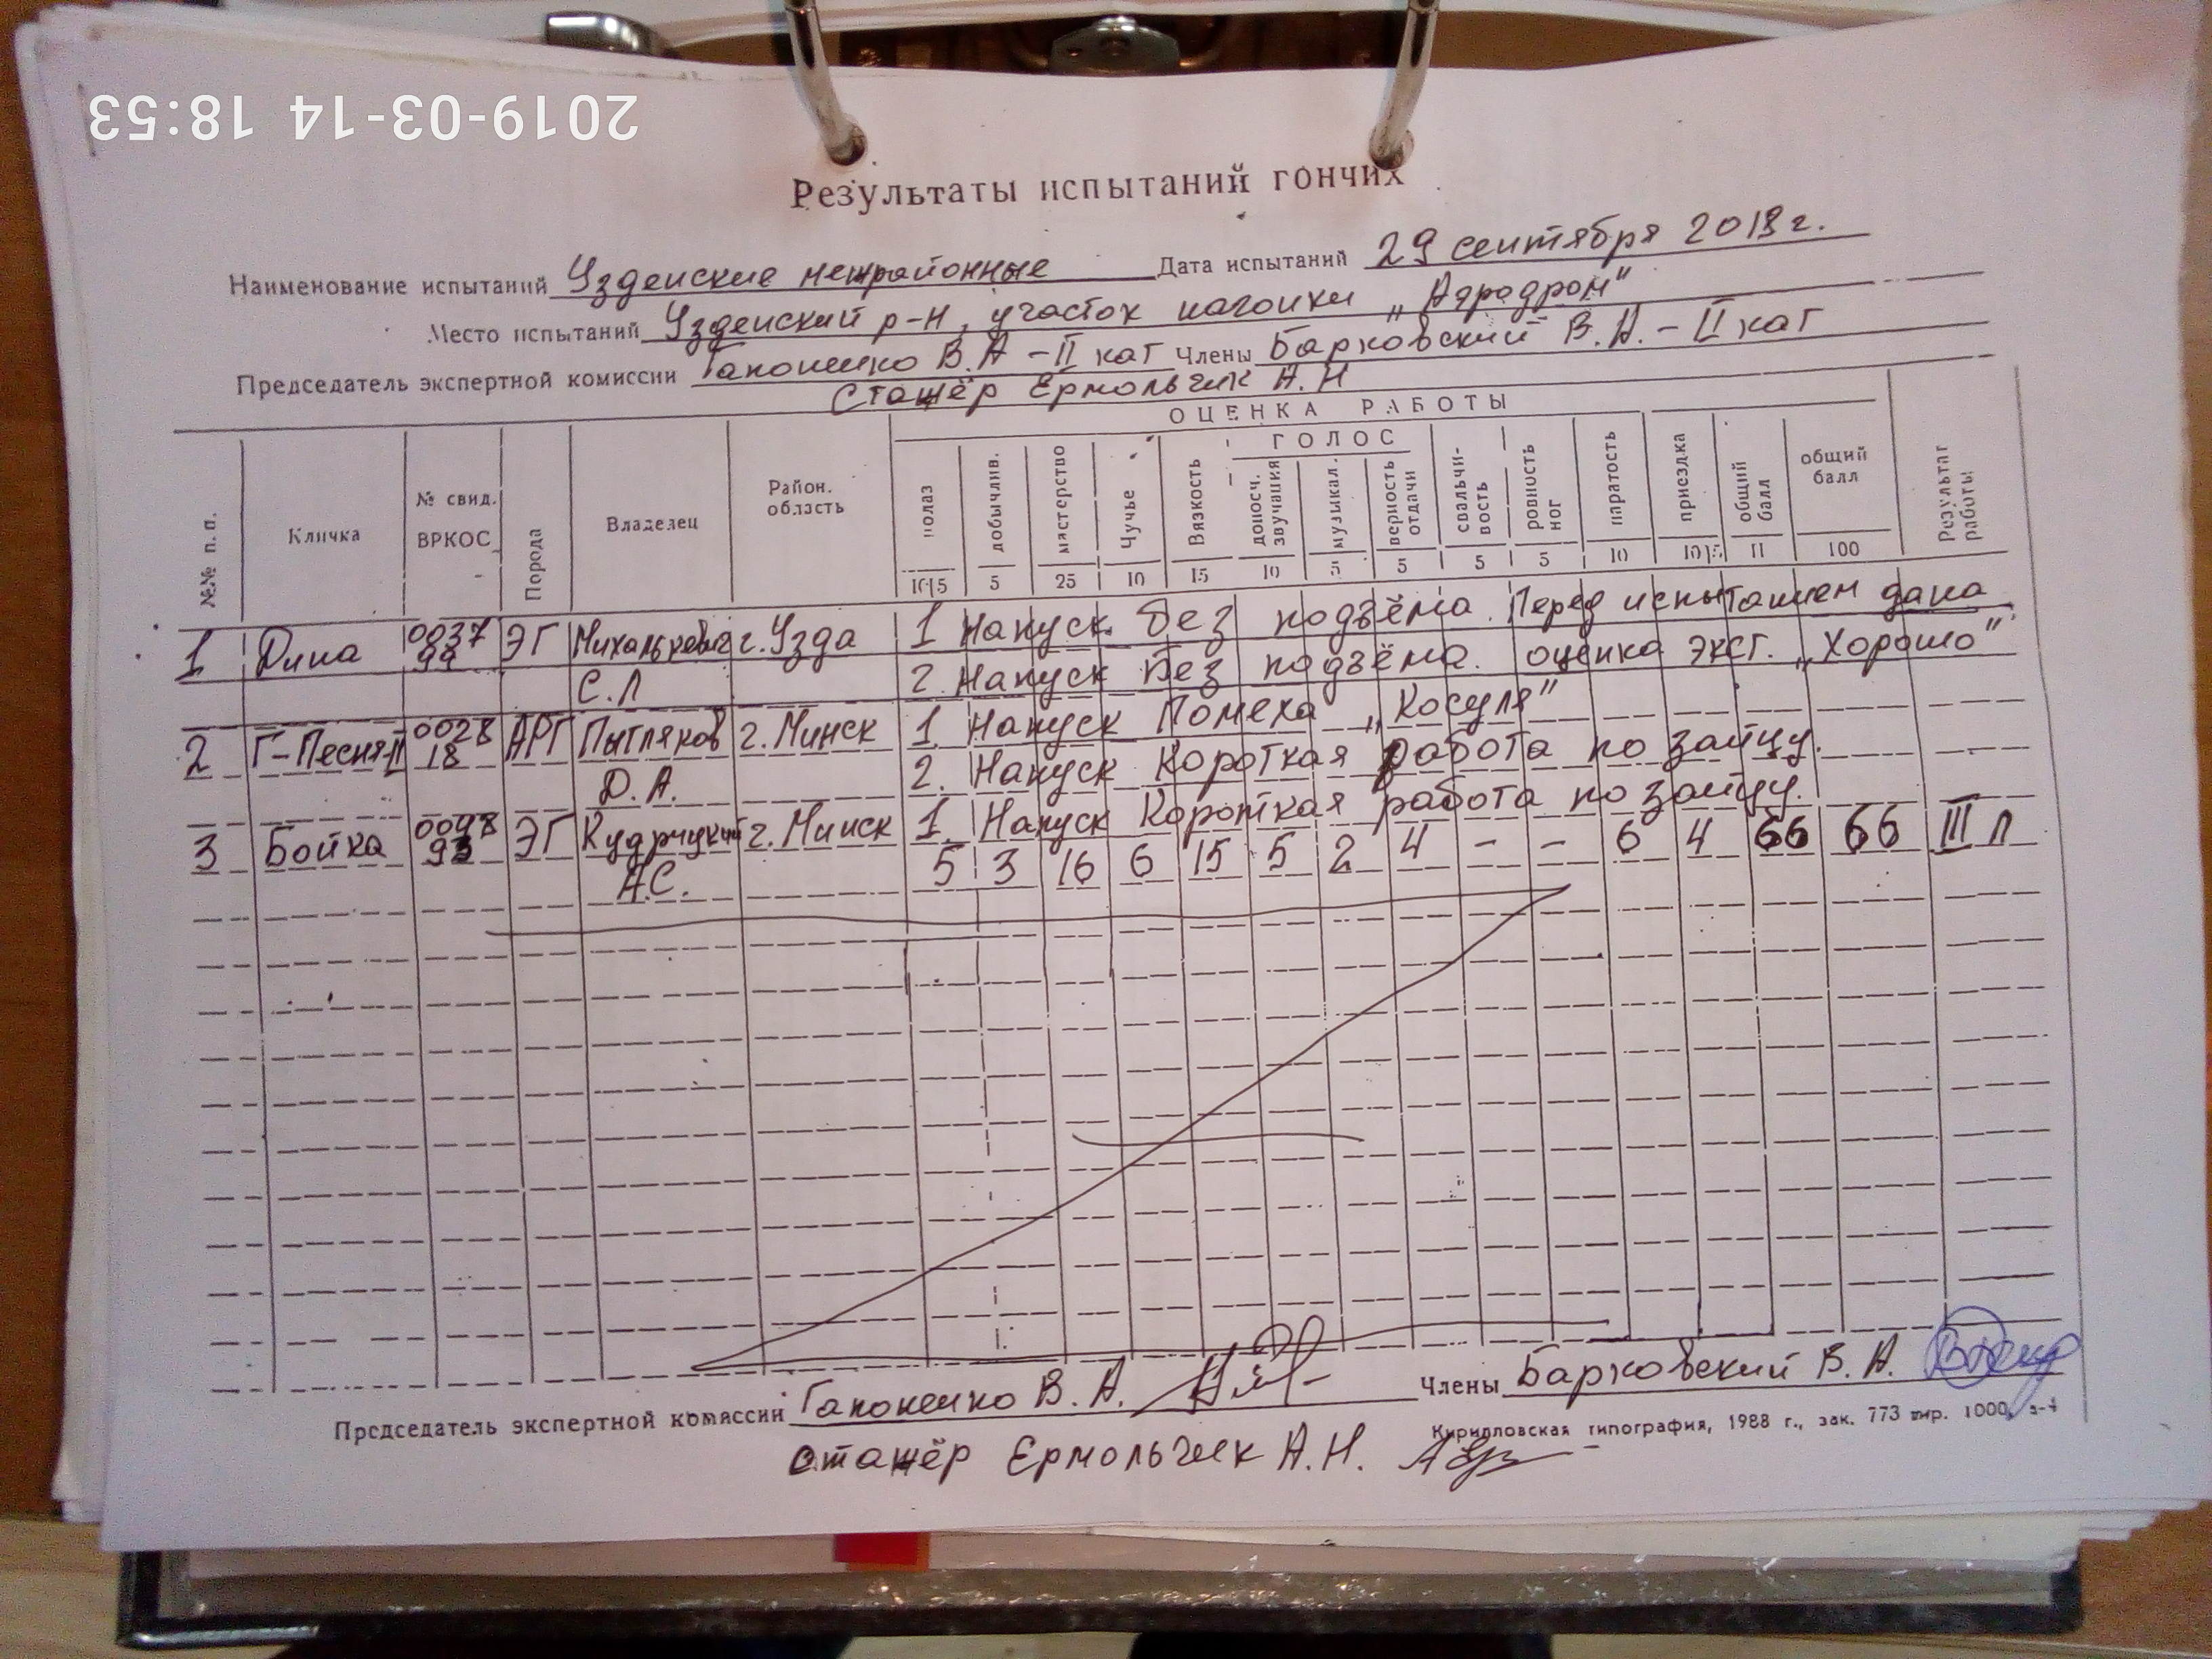 2019-03-14 18:53
Результаты испытаний гончих
Наименование испытаний Узденские межрайонные Дата испытаний 29 сентября 2018 г.
Место испытаний Узденский р-н, участок нагонки „Аэродром"
Председатель экспертной комиссии Гапоненко В.А – II кат Члены Барковский В.А. – II кат
Стажёр Ермольчик А.Н
ОЦЕНКА РАБОТЫ
ГОЛОС
№№ п. п. Кличка № свид. ВРКОС Порода Владелец Район. область полаз добычлив. мастерство Чутье Вязкость доносч. звучания музыкал. верность отдачи свальчи-вость ровность ног паратость приездка общий балл общий балл Результат работы
5 25 10 15 10 5 5 5 5 10 11 100
1 Дина 0037 99 ЭГ Михалькевич г. Узда 1 Напуск без подъёма. Перед испытанием дана
С.Л 2. Напуск Без подъёма. оценка экст. „Хорошо"
2 Г-Песня-II 0028 18 АРГ Пытляков г. Минск 1. Напуск Помеха „Косуля"
Д.А. 2. Напуск Короткая работа по зайцу.
3 Бойка ЭГ г. Минск 1. Напуск Короткая работа по зайцу.
А.С. 5 3 16 6 15 5 2 4 – – 6 4 66 66 III Л
Председатель экспертной комиссии Гапоненко В. А. Члены Барковский В. А.
Кирилловская типография, 1988 г., зак. 773 тир. 1000
стажёр Ермольчик А.Н.